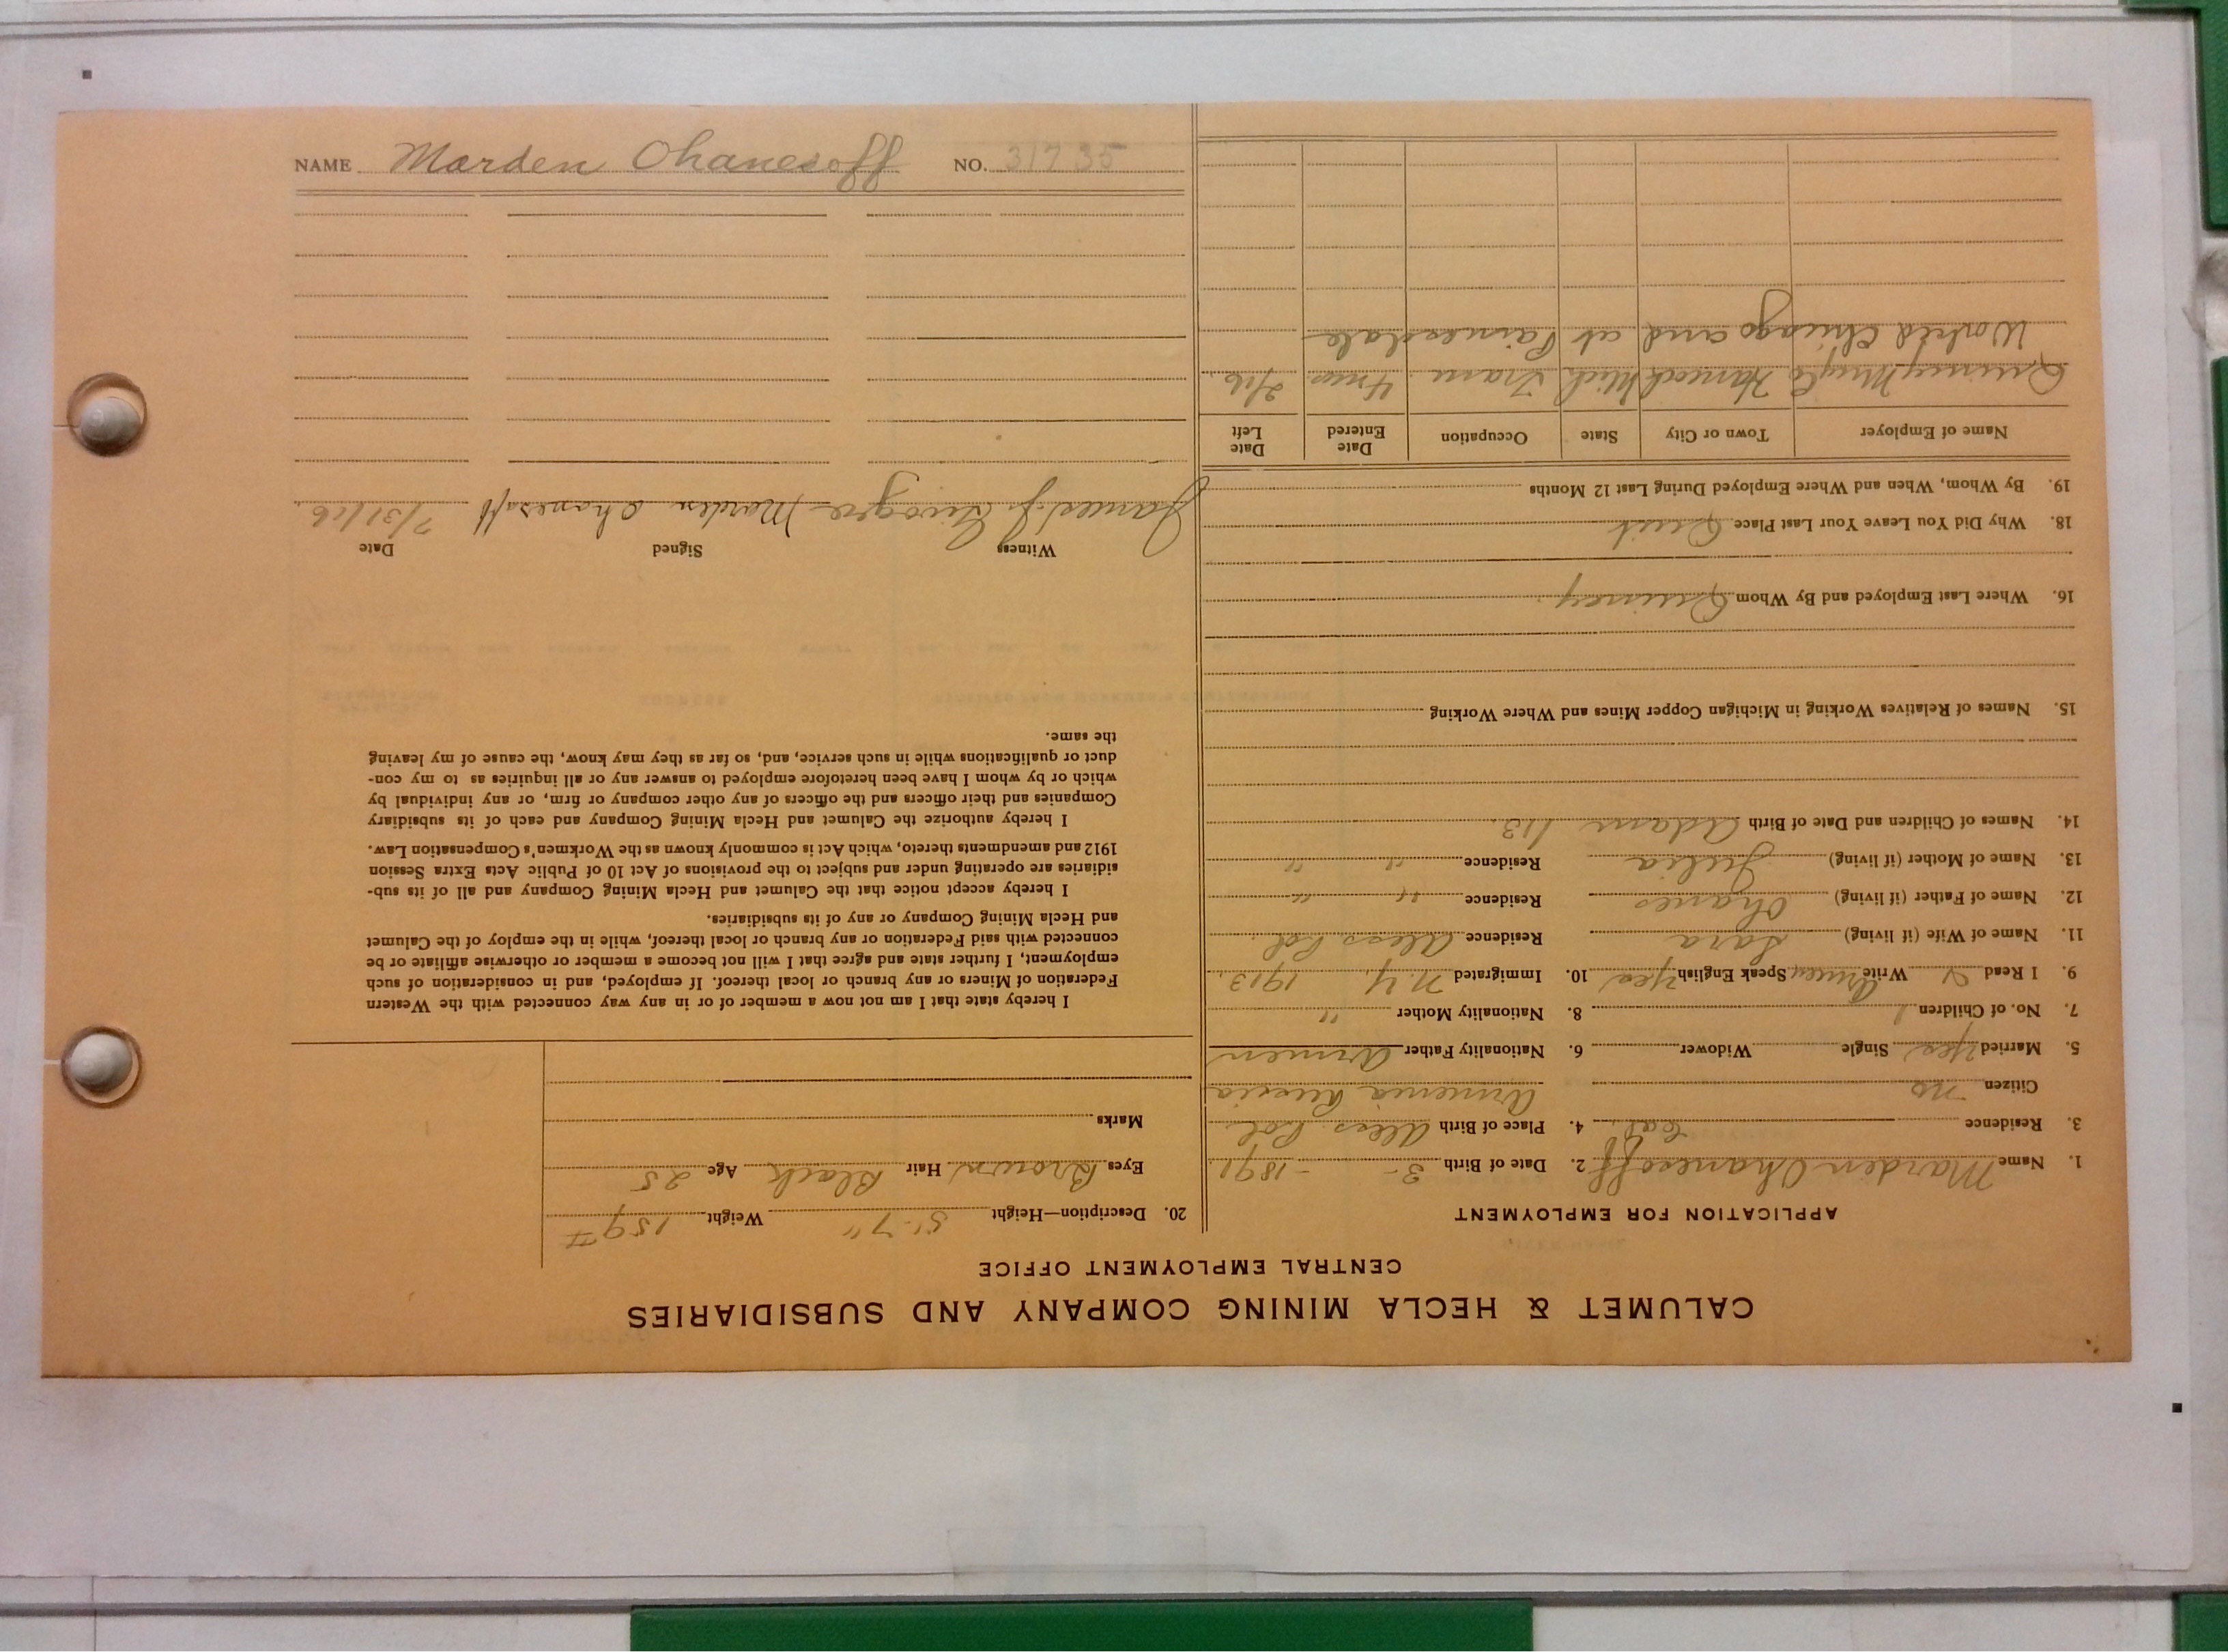 CALUMET & HECLA MINING COMPANY AND SUBSIDIARIES
CENTRAL EMPLOYMENT OFFICE
APPLICATION FOR EMPLOYMENT
1. Name Marden Ohanesoff 2. Date of Birth 3 - 1891
3. Residence Cal. 4. Place of Birth Alexs Pol.
Citizen no Armenia Russia
5. Married Yes Single Widower 6. Nationality Father Armen
7. No. of Children 1 8. Nationality Mother "
9. I Read Write Armen Speak English Yes 10. Immigrated N.Y. 1913.
11. Name of Wife (if living) Sara Residence Alexs Pol.
12. Name of Father (if living) Ohanes Residence " "
13. Name of Mother (if living) Julia Residence " "
14. Names of Children and Date of Birth Adam 1/13.
15. Names of Relatives Working in Michigan Copper Mines and Where Working
16. Where Last Employed and By Whom Quincy.
18. Why Did You Leave Your Last Place Quit
19. By Whom, When and Where Employed During Last 12 Months
Name of Employer Town or City State Occupation Date Entered Date Left
Quincy Mng Co Hancock Mich Tram. 4 mos. 2/16.
Worked Chicago and at Painesdale
20. Description—Height 5'-7" Weight 159 #
Eyes Brown Hair Black Age 25
Marks
I hereby state that I am not now a member of or in any way connected with the Western
Federation of Miners or any branch or local thereof. If employed, and in consideration of such
employment, I further state and agree that I will not become a member or otherwise affiliate or be
connected with said Federation or any branch or local thereof, while in the employ of the Calumet
and Hecla Mining Company or any of its subsidiaries.
I hereby accept notice that the Calumet and Hecla Mining Company and all of its sub-
sidiaries are operating under and subject to the provisions of Act 10 of Public Acts Extra Session
1912 and amendments thereto, which Act is commonly known as the Workmen's Compensation Law.
I hereby authorize the Calumet and Hecla Mining Company and each of its subsidiary
Companies and their officers and the officers of any other company or firm, or any individual by
which or by whom I have been heretofore employed to answer any or all inquiries as to my con-
duct or qualifications while in such service, and, so far as they may know, the cause of my leaving
the same.
Witness Signed Date
James J. Marden Ohanesoff 7/31/16.
NAME Marden Ohanesoff NO. 31735